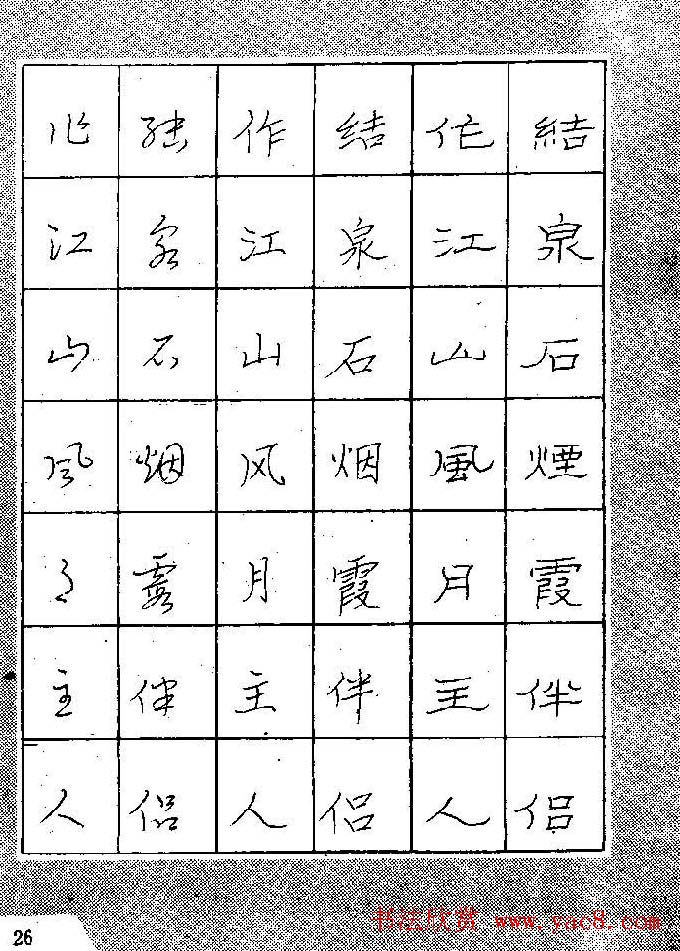 結泉石煙霞伴侣
作江山風月主人
结泉石烟霞伴侣
作江山风月主人
结泉石烟霞伴侣
作江山風月主人
26
书法欣赏 www.yac8.com